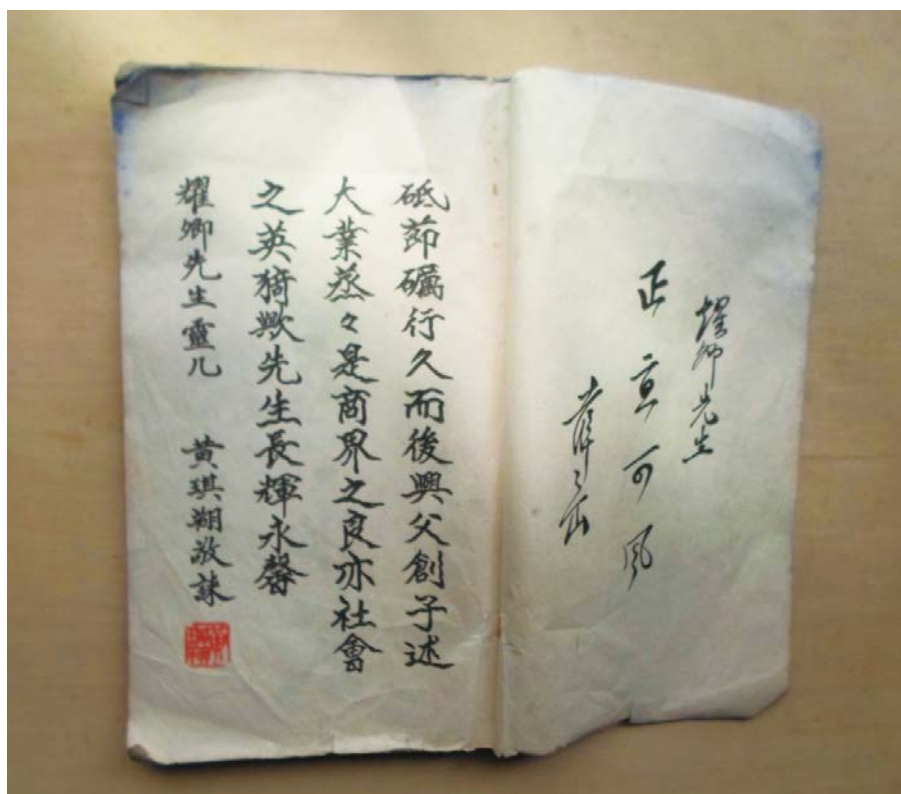 耀卿先生
正直可风
砥節礪行久而後興父創子述
大業蒸々是商界之良亦社會
之英猗歟先生長輝永馨
耀卿先生靈几 黃琪翔敬誄